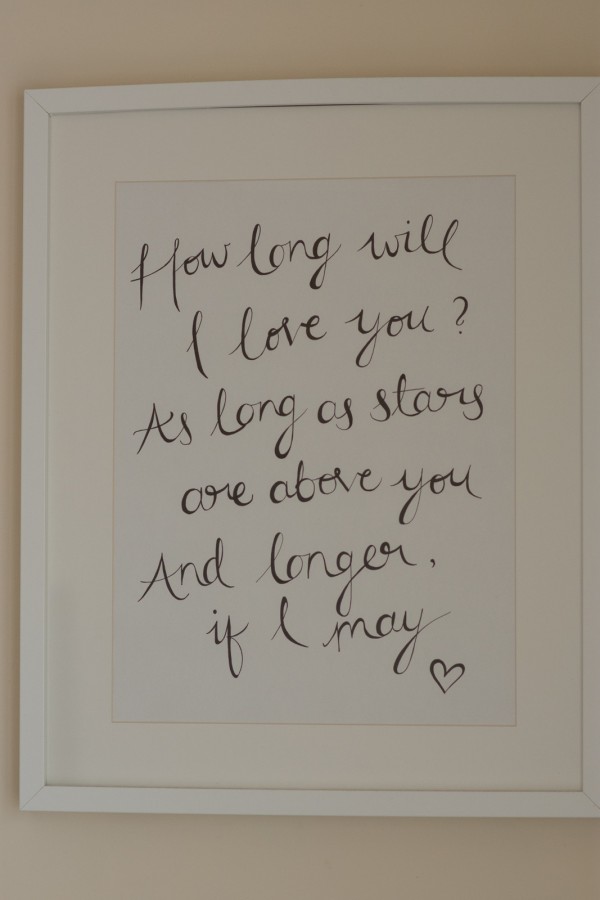 How long will
I love you?
As long as stars
are above you
And longer,
if I may